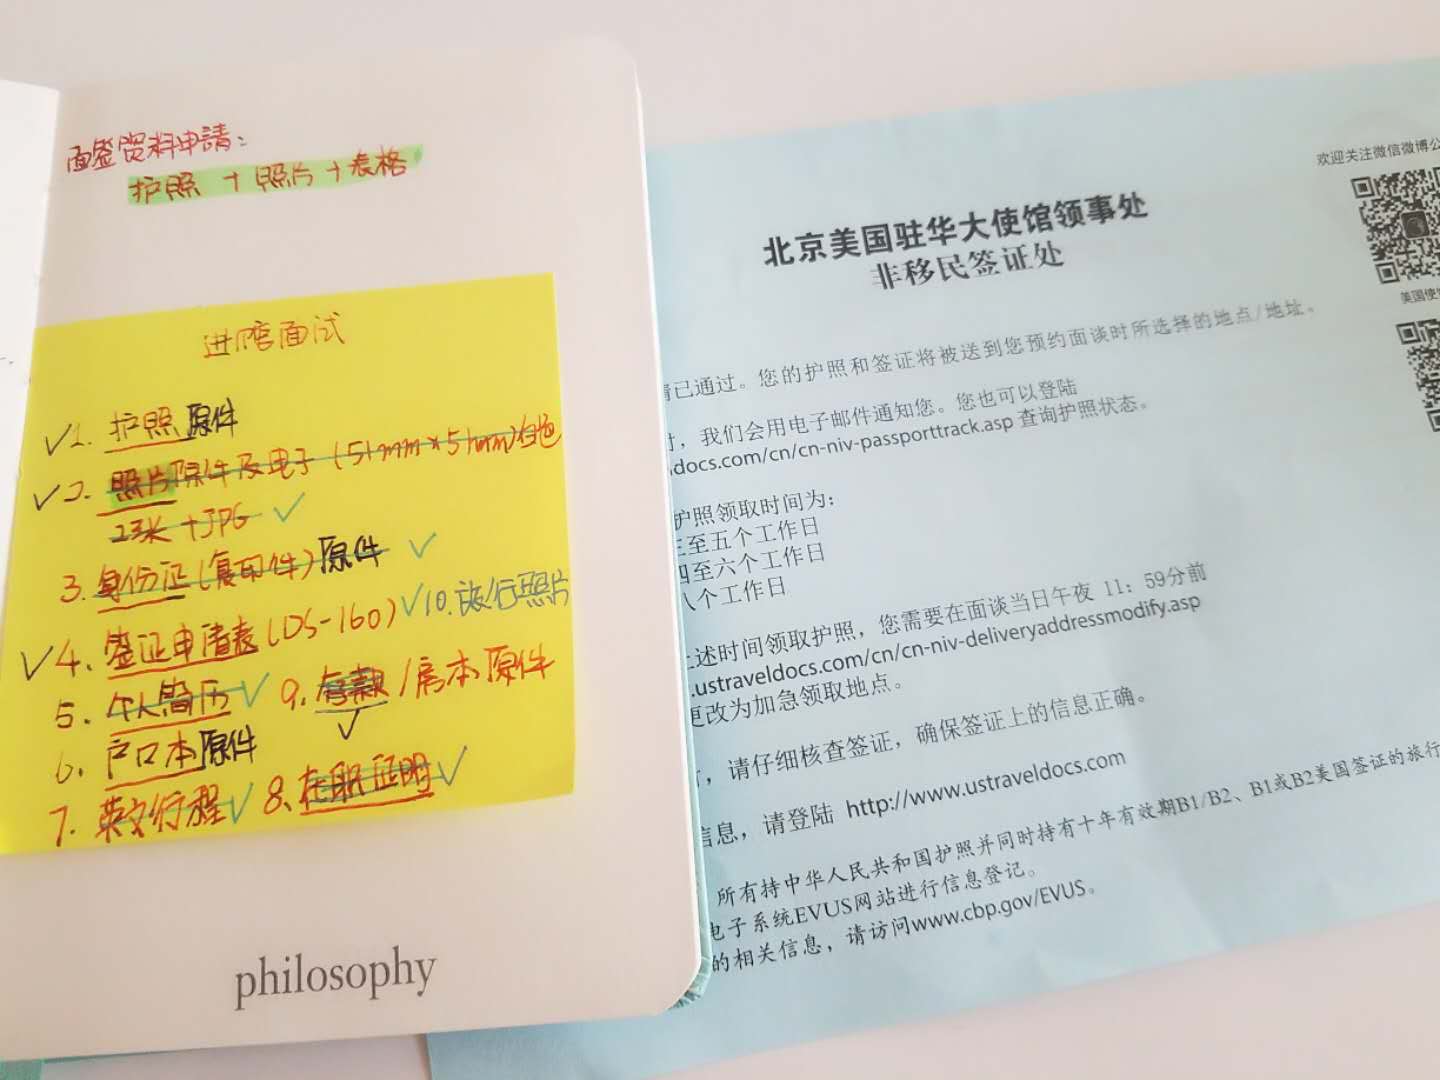 面签资料申請:
护照 + 照片 + 表格
进馆面试
✓1. 护照原件
✓2. 照片原件及电子(51mm*51mm)白色
+JPG ✓
3. 身份证(复印件)原件 ✓
✓4. 签证申请表(DS-160) ✓10.旅行照片
5. 个人简历 ✓ 9. 存款/房本原件
✓
6. 户口本原件
7. 英文行程 ✓ 8. 在职证明 ✓
philosophy
欢迎关注微信微博公
北京美国驻华大使馆领事处
非移民签证处
美国使
已通过。您的护照和签证将被送到您预约面谈时所选择的地点/地址。
,我们会用电子邮件通知您。您也可以登陆
docs.com/cn/cn-niv-passporttrack.asp 查询护照状态。
护照领取时间为:
至五个工作日
四至六个工作日
八个工作日
上述时间领取护照,您需要在面谈当日午夜 11:59分前
.ustraveldocs.com/cn/cn-niv-deliveryaddressmodify.asp
更改为加急领取地点。
,请仔细核查签证,确保签证上的信息正确。
信息,请登陆 http://www.ustraveldocs.com
所有持中华人民共和国护照并同时持有十年有效期B1/B2、B1或B2美国签证的旅行
电子系统EVUS网站进行信息登记。
的相关信息,请访问www.cbp.gov/EVUS。